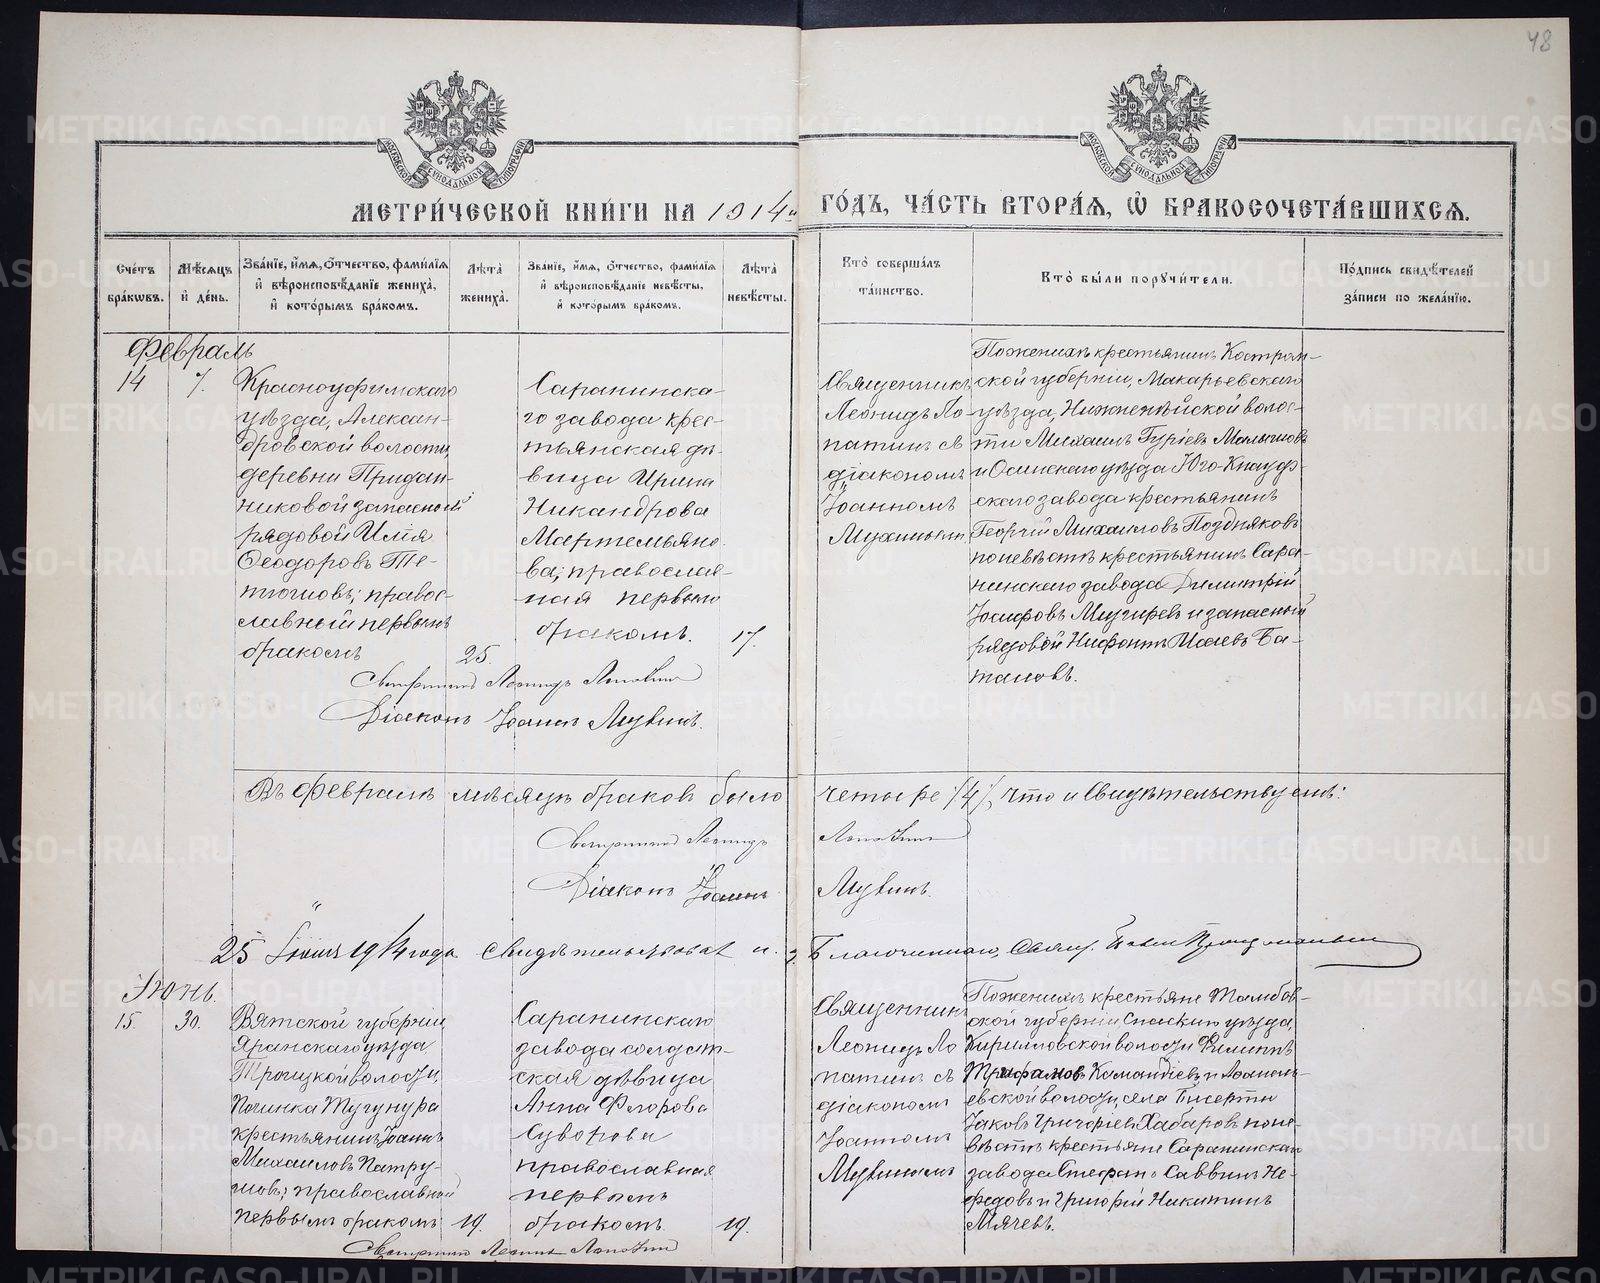 48
МЕТРИ́ЧЕСКОЙ КНИ́ГИ НА 1914й ГО́ДЪ, ЧА́СТЬ ВТОРА́Я, Ѡ҆ БРАКОСОЧЕТА́ВШИХСЯ.
Сче́тъ бра́кѡвъ.
Мѣ́сяцъ и҆ де́нь.
Зва́нїе, и҆́мя, ѻ҆́тчество, фами́лїя и҆ вѣроисповѣ́данїе жениха̀, и҆ кото́рымъ бра́комъ.
Лѣ́та жениха̀.
Зва́нїе, и҆́мя, ѻ҆́тчество, фами́лїя и҆ вѣроисповѣ́данїе невѣ́сты, и҆ кото́рымъ бра́комъ.
Лѣ́та невѣ́сты.
Кто̀ соверша́лъ та́инство.
Кто̀ бы́ли порꙋчи́тели.
По́дпись свидѣ́телей за́писи по жела́нїю.
Февраль
14
7.
Красноуфимскаго
уѣзда, Алексан-
дровской волости,
деревни Придан-
никовой запасной
рядовой Илія
Ѳеодоровъ Те-
правос-
лавный первымъ
бракомъ
25.
Саранинска-
го завода крес-
тьянская дѣ-
вица Ирина
Никандрова
Мартемьяно-
ва; православ-
ная первымъ
бракомъ.
17.
Священникъ
Леонидъ Ло-
патинъ съ
діакономъ
Іоанномъ
По женихѣ крестьянинъ Костром-
ской губерніи, Макарьевскаго
уѣзда, Нижненейской волос-
ти Михаилъ Гуріевъ Малышовъ
и Осинскаго уѣзда Юго-Кнауф-
скаго завода крестьянинъ
Георгій Михаиловъ Поздняковъ
по невѣстѣ крестьянинъ Сара-
нинскаго завода Димитрій
Іосифовъ и запасный
рядовой Нифонтъ Исаевъ Ба-
тановъ.
Священникъ Леонидъ Лопатинъ
Діаконъ Іоаннъ
Въ Февралѣ мѣсяцѣ браковъ было четыре /4/, что и свидѣтельствуемъ:
Священникъ Леонидъ Лопатинъ
Діаконъ Іоаннъ
25 Іюня 1914 года свидѣтельствовалъ и. д. Благочиннаго, Свящ. Павелъ
Іюнь.
15.
30.
Вятской губерніи
Яранскаго уѣзда
Троицкой волости,
починка Тугунура
крестьянинъ Іоаннъ
Михаиловъ Патру-
шовъ; православный
первымъ бракомъ
19.
Саранинскаго
завода солдат-
ская дѣвица
Анна Флорова
Суворова
православная
первымъ
бракомъ
19.
Священникъ
Леонидъ Ло-
патинъ съ
діакономъ
Іоанномъ
По женихѣ крестьяне Тамбов-
ской губерніи Спасскаго уѣзда,
Кирилловской волости Филиппъ
Трифановъ и Аѳанась-
евской волости, села Бисерти
Іаковъ Григорьевъ Хабаровъ по не-
вѣстѣ крестьяне Саранинскаго
завода Стефанъ Саввинъ Не-
федовъ и Григорій Никитинъ
Мячевъ.
Священникъ Леонидъ Лопатинъ
METRIKI.GASO-URAL.RU